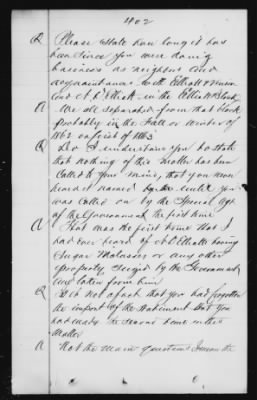 402
Q Please state how long it has
been since you were doing
business as neighbors and
acquaintances with Elliott & Vinson
and A. C. Elliott in the Elliott Block
A We all separated from that block
probably in the Fall or Winter of
1862 or first of 1863
Q Do I understand you to state
that nothing of this matter has been
called to your mind, that you never
heard it named by me until you
was called on by the Special Agt
of the Government the first time
A That was the first time that I
had ever heard of A C Elliott having
Sugar Molasses or any other
property seized by the Government
ever taken from him
Q Is it not a fact that you had forgotten
the import of the statement that you
had made the second time in this
matter
A Not the main questions I mean the